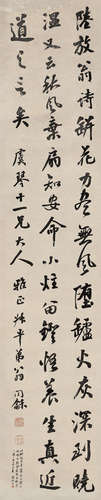 陸放翁詩缾花力盡無風墮鑪火灰深到曉
温又云秋風棄扇知安命小炷留鐙悟養生真近
道之言矣 虞琴十一兄大人 雅正 叔平弟翁同龢